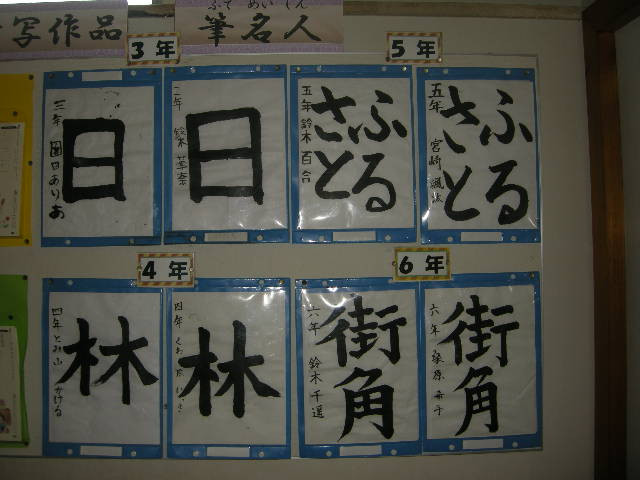 写作品
ふで めいじん
筆名人
3年
5年
日
三年
日
ふる
さと
五年 鈴木百合
ふる
さと
五年 宮崎颯汰
4年
6年
林
四年 とみ山 かける
林
四年
街角
六年 鈴木千遥
街角
六年 桑原